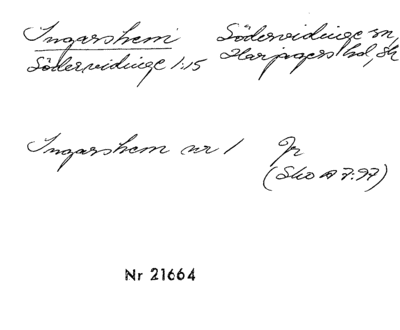 Ingarshem Södervidinge sn,
Södervidinge 1:15 Harjagers hd, Sk
Ingarshem nr 1 Jr
(Sko A 7:97)
Nr 21664